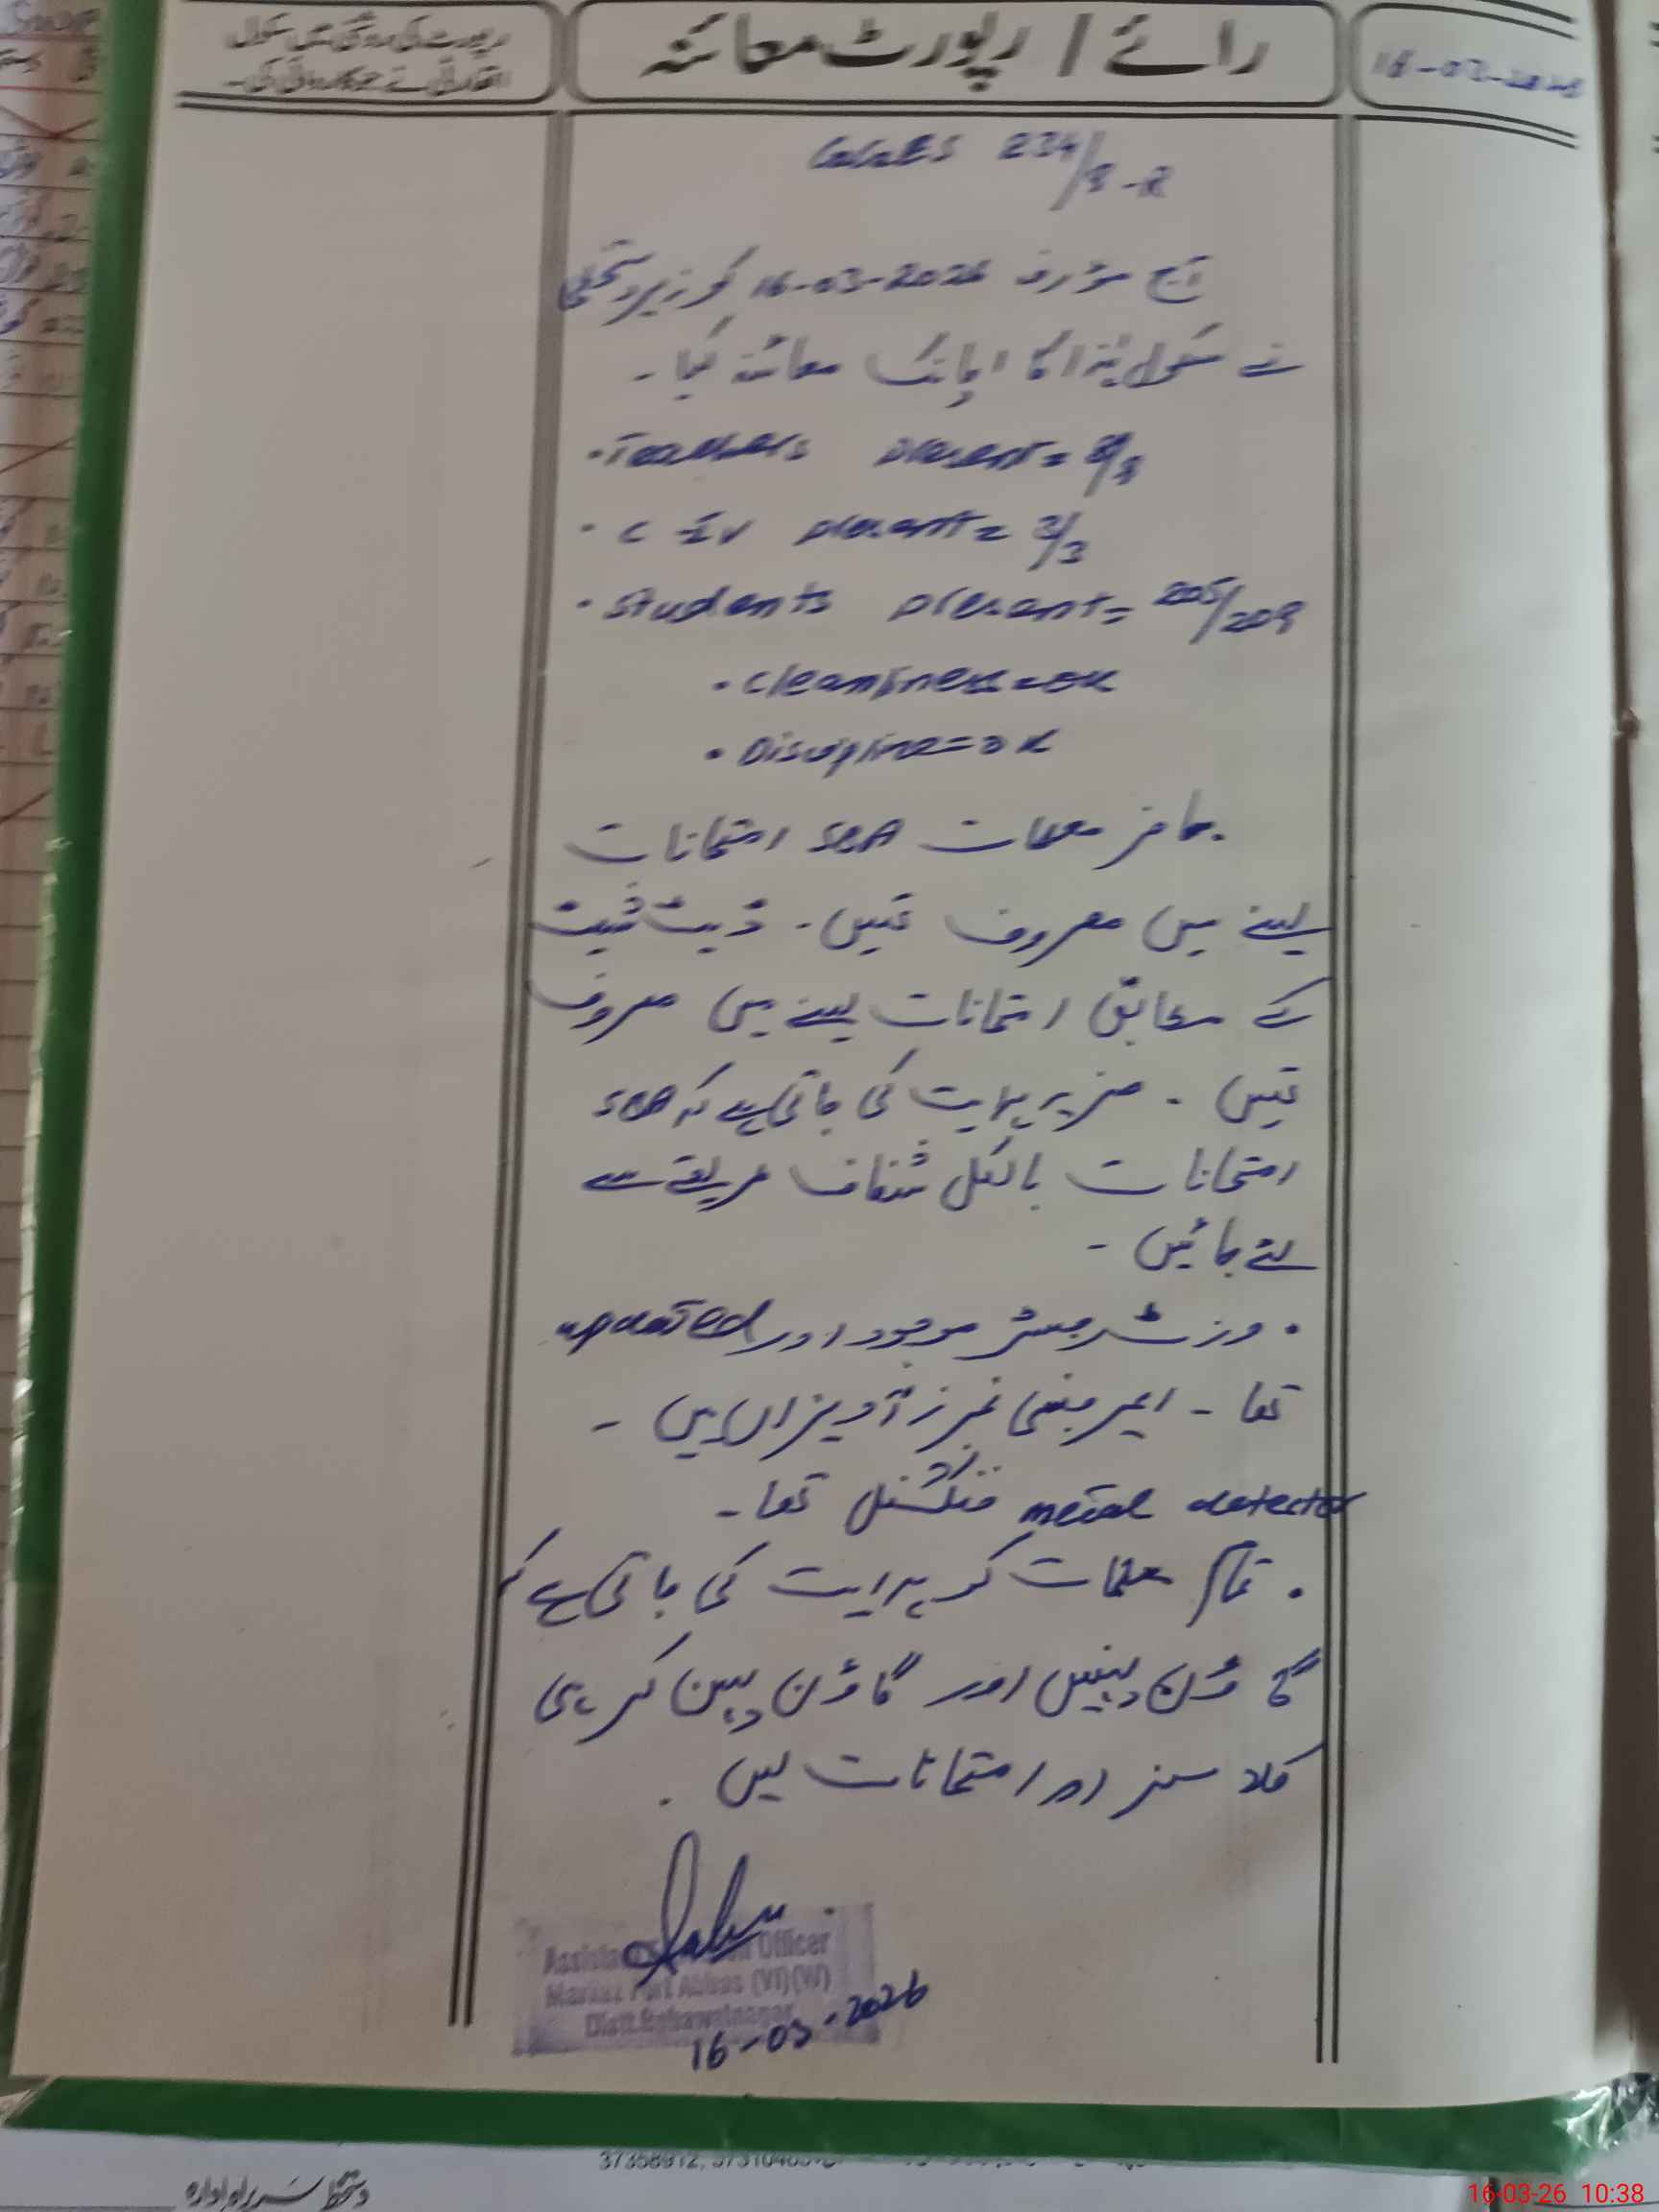 رائے / رپورٹ معائنہ
16-03-2026
رپورٹ کی روشنی میں سکول
234/9-R
آج مؤرخہ 16-03-2026 کو زیر دستخطی
نے سکول ہذا کا اچانک معائنہ کیا۔
• Teachers present = 8/8
• C-IV present = 3/3
• Students present = 205/209
• Cleanliness = ok
• Discipline = ok
• حاضر معلمات SBA امتحانات
لینے میں مصروف تھیں۔ ڈیٹ شیٹ
کے مطابق امتحانات لینے میں مصروف
تھیں۔ مزید ہدایت کی جاتی ہے کہ SBA
امتحانات بالکل شفاف طریقے سے
لئے جائیں۔
• وزٹ رجسٹر موجود اور updated
تھا۔ ایمرجنسی نمبرز آویزاں ہیں۔
metal detector فنکشنل تھا۔
• تمام معلمات کو ہدایت کی جاتی ہے کہ
گاؤن پہنیں اور گاؤن پہن کر ہی
کلاسز اور امتحانات لیں۔
Assistant Education Officer
Markaz Fort Abbas (VI) (W)
Distt. Bahawalnagar
16-03-2026
دستخط سربراہ ادارہ
16-03-26 10:38